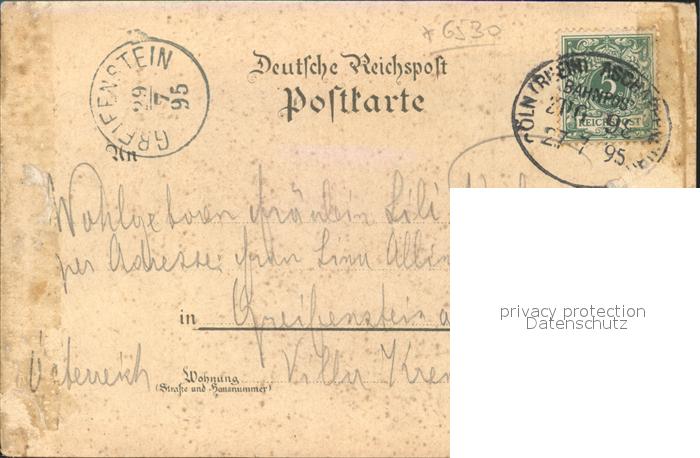 * 6530
GREIFENSTEIN
29
7
95
Deutsche Reichspost
Postkarte
CÖLN (RHEIN)
BAHNPOST
ZUG 98
27 7 95.
REICHSPOST
An
Wohlgeboren Fräulein Lili
per Adresse: Frau Lina
in Greifenstein a
Österreich Villa
Wohnung
(Straße und Hausnummer)
privacy protection
Datenschutz